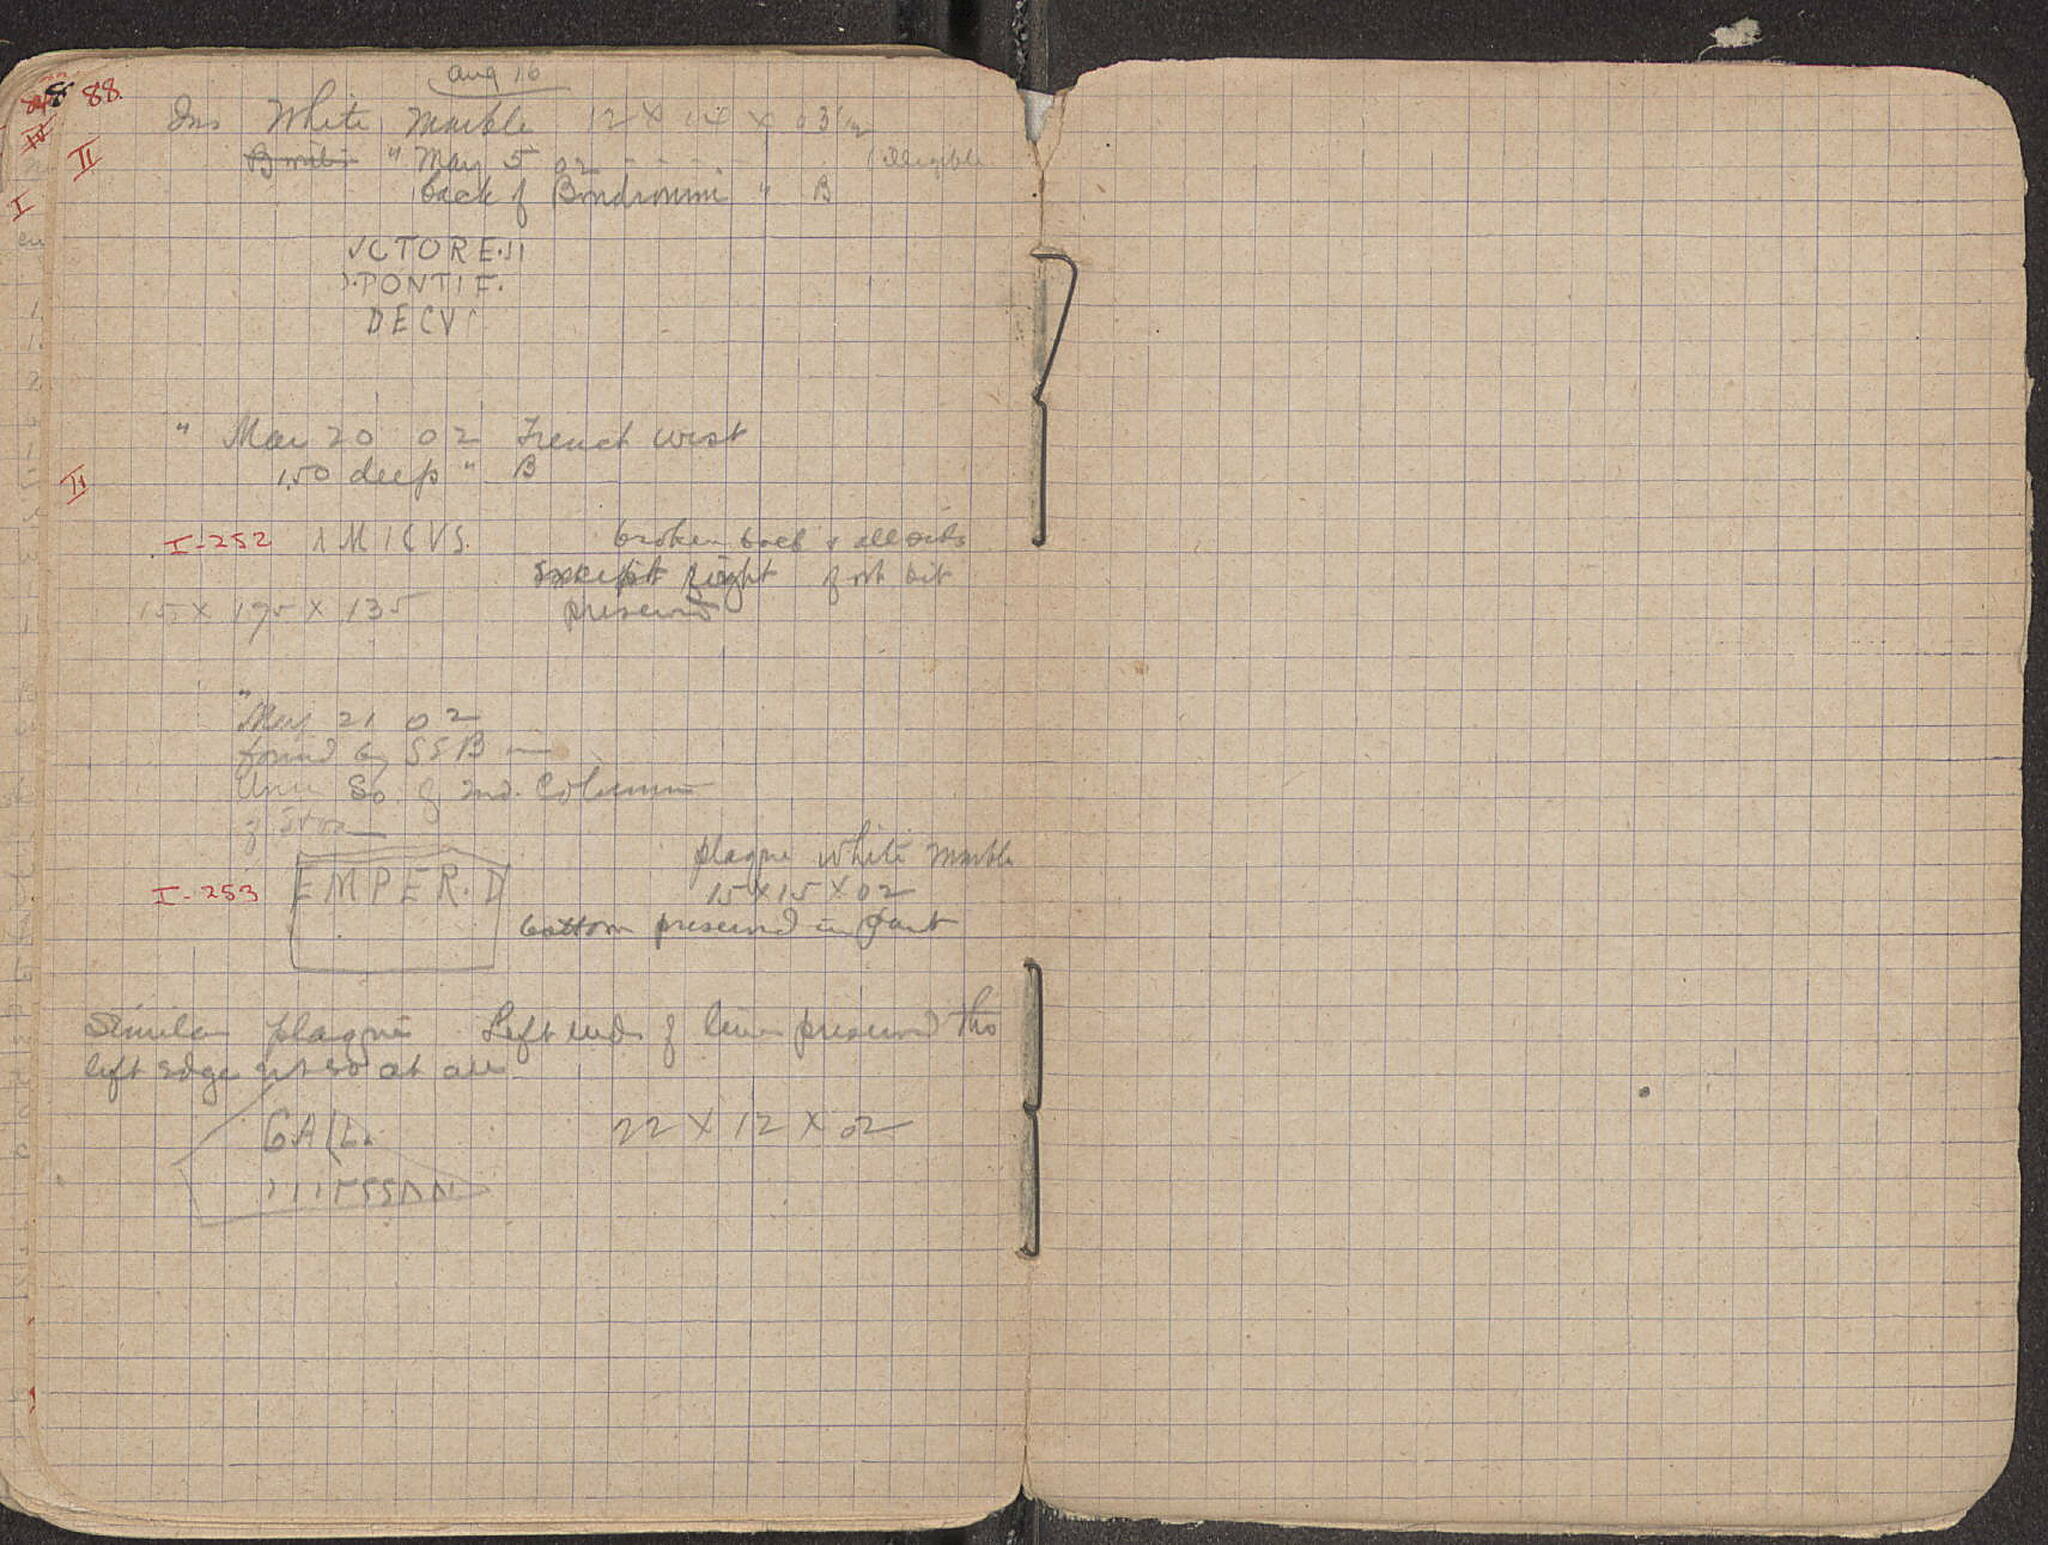 88.
Aug 16
Ins White Marble 12 × 14 × 03
II " May 5 02 - - - - illegible
back of " B
CTORE
PONTIF.
DECV
" Mar 20 02 Trench west
II 1.50 deep " B
I-252 MICVS. broken back & all sides
except right of wh bit
15 × 175 × 135 preserved
"
May 21 02
found by SSB in
So. of 2nd. Column
of Stoa
plaque white marble
I-253 EMPER. D 15 × 15 × 02
bottom preserved in part
Similar plaque Left ends of lines preserved tho
left edge not so at all
GALL. 22 × 12 × 02